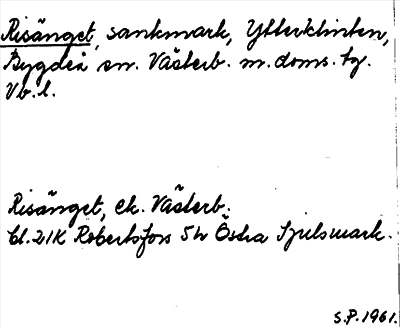 Risänget, sankmark, Ytterklinten,
Bygdeå sn. Västerb. m. doms. tg.
Vb. l.
Risänget, ek. Västerb.
bl. 21K Robertsfors 5h Östra Sjulsmark.
S.P. 1961.